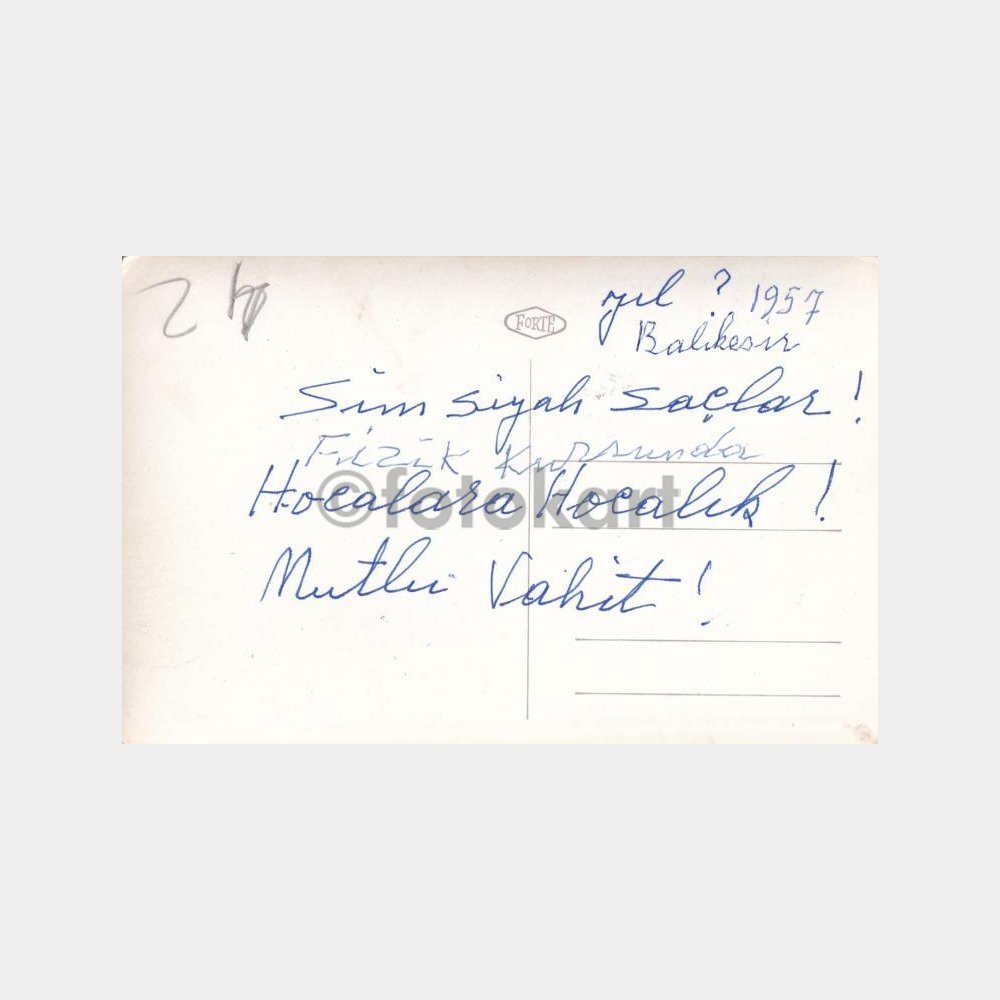 24
FORTE
yıl ? 1957
Balıkesir
Sim siyah saçlar !
Fizik Kursunda
Hocalara Hocalık !
©fotokart
Mutlu Vahit !